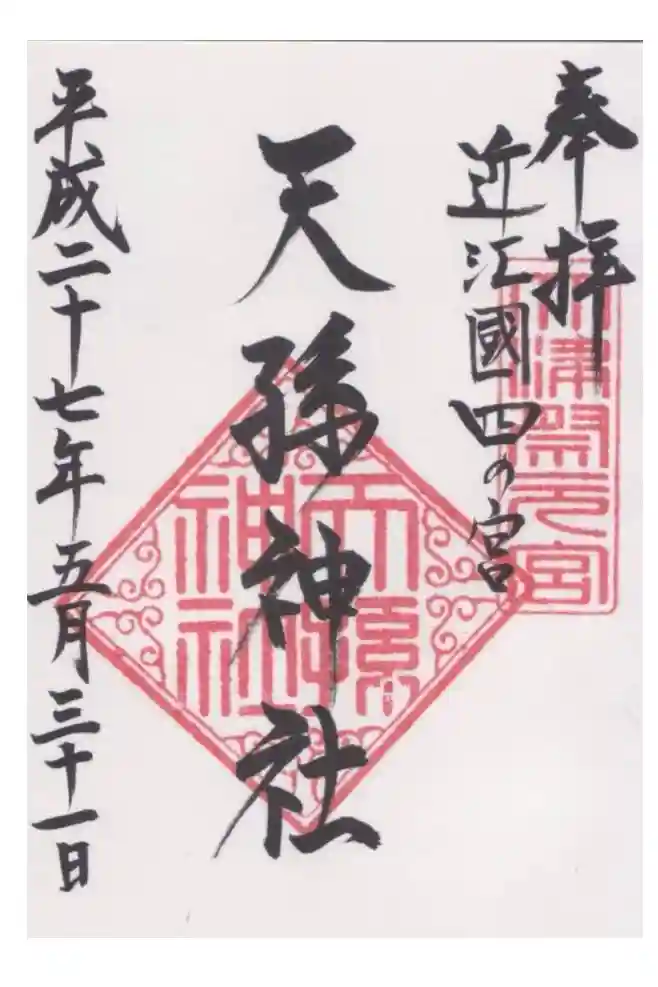 奉拝
大津祭元宮
近江國四の宮
天孫神社
天孫神社
平成二十七年五月三十一日